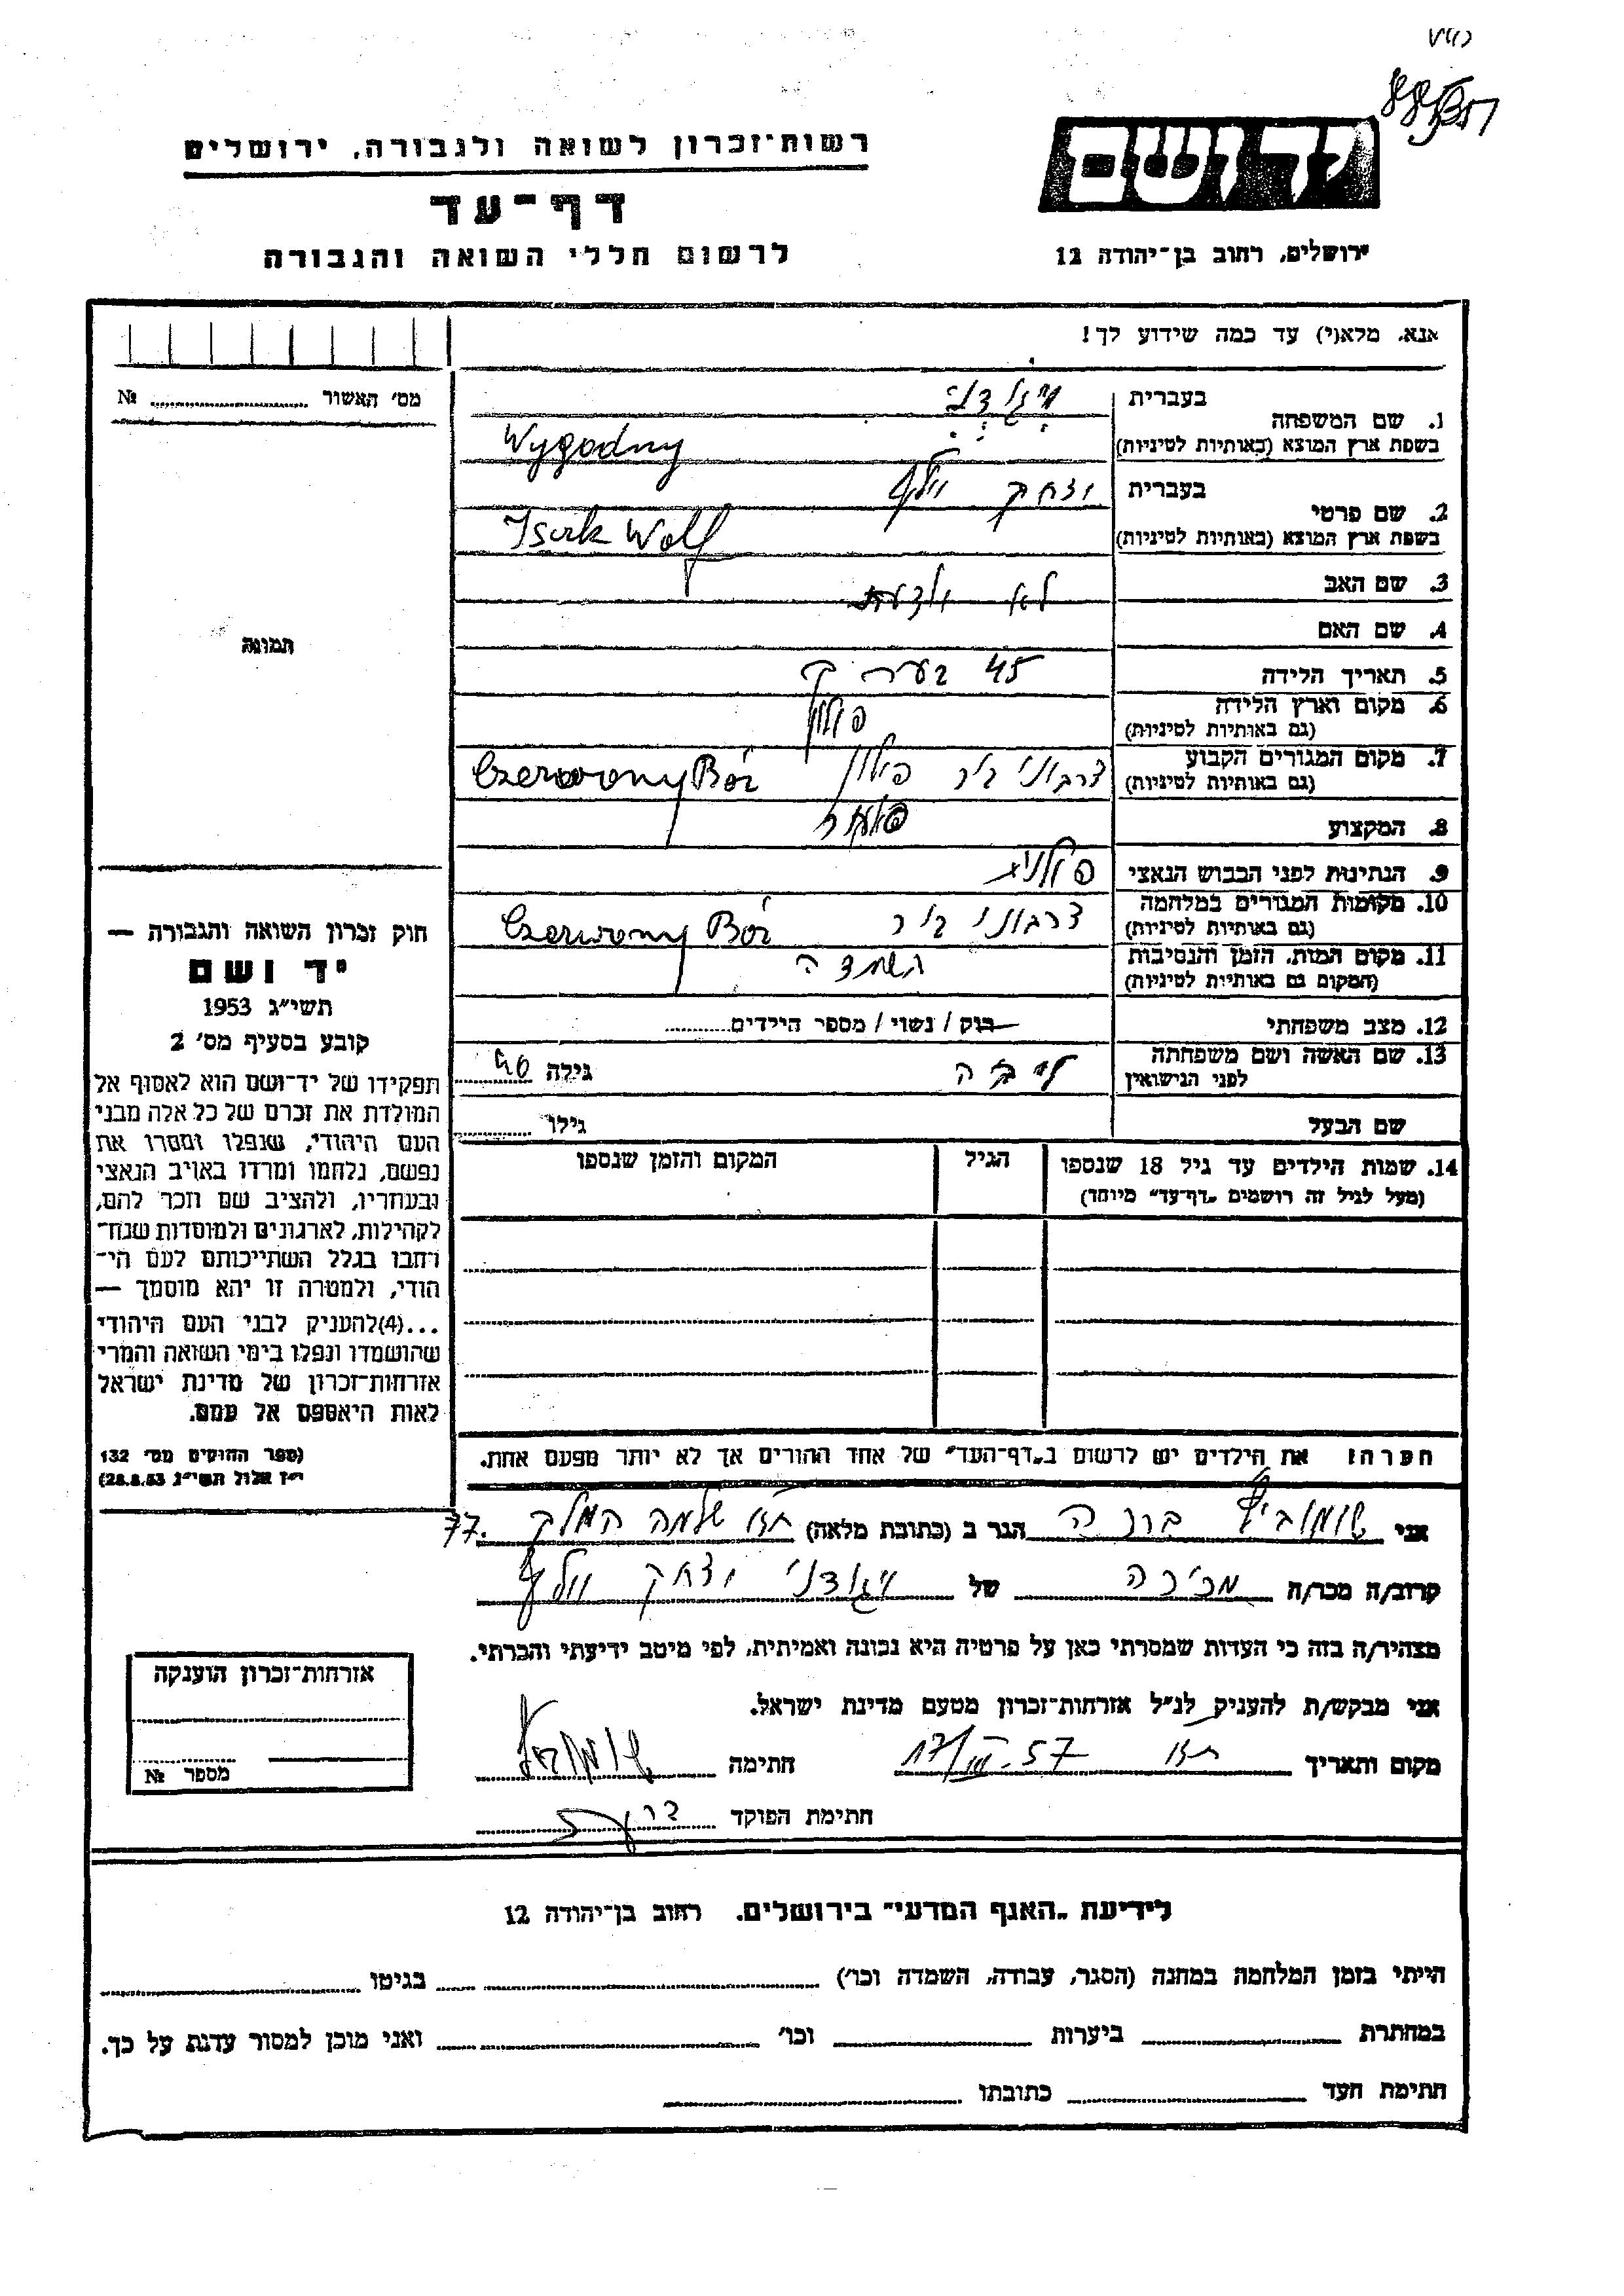 רשות־זכרון לשואה ולגבורה, ירושלים
דף־עד
לרשום חללי השואה והגבורה
יד ושם
ירושלים, רחוב בן־יהודה 12
אנא, מלא(י) עד כמה שידוע לך!
מס׳ האשור №
תמונה
1. שם המשפחה
בעברית ויגודני
בשפת ארץ המוצא (באותיות לטיניות) Wygodny
2. שם פרטי
בעברית יצחק וולף
בשפת ארץ המוצא (באותיות לטיניות) Isak Wolf
3. שם האב לא יודעת
4. שם האם
5. תאריך הלידה 45 בערך
6. מקום וארץ הלידה פולין
(גם באותיות לטיניות)
7. מקום המגורים הקבוע צרבוני בור פולין Czerwony Bór
(גם באותיות לטיניות)
8. המקצוע
9. הנתינות לפני הכבוש הנאצי פולנית
10. מקומות המגורים במלחמה צרבוני בור Czerwony Bór
(גם באותיות לטיניות)
11. מקום המות, הזמן והנסיבות השמדה
(המקום גם באותיות לטיניות)
12. מצב משפחתי רוק / נשוי / מספר הילדים
13. שם האשה ושם משפחתה ליבה גילה 40
לפני הנישואין
שם הבעל גילו
14. שמות הילדים עד גיל 18 שנספו הגיל המקום והזמן שנספו
(מעל לגיל זה רושמים „דף־עד״ מיוחד)
חוק זכרון השואה והגבורה —
יד ושם
תשי״ג 1953
קובע בסעיף מס׳ 2
תפקידו של יד־ושם הוא לאסוף אל
המולדת את זכרם של כל אלה מבני
העם היהודי, שנפלו ומסרו את
נפשם, נלחמו ומרדו באויב הנאצי
ובעוזריו, ולהציב שם וזכר להם,
לקהילות, לארגונים ולמוסדות שנח־
רבו בגלל השתייכותם לעם הי־
הודי, ולמטרה זו יהא מוסמך —
...(4)להעניק לבני העם היהודי
שהושמדו ונפלו בימי השואה והמרי
אזרחות־זכרון של מדינת ישראל
לאות היאספם אל עמם.
(ספר החוקים מס׳ 132
י״ז אלול תשי״ג 28.8.53)
הערה: את הילדים יש לרשום ב„דף־העד״ של אחד ההורים אך לא יותר מפעם אחת.
אני ברכה הגר ב (כתובת מלאה) שלמה המלך 77.
קרוב/ה מכר/ה מכירה של ויגודני יצחק וולף
מצהיר/ה בזה כי העדות שמסרתי כאן על פרטיה היא נכונה ואמיתית, לפי מיטב ידיעתי והכרתי.
אני מבקש/ת להעניק לנ״ל אזרחות־זכרון מטעם מדינת ישראל.
מקום ותאריך 57 חתימה
חתימת הפוקד
אזרחות־זכרון הוענקה
מספר №
לידיעת „האגף המדעי״ בירושלים, רחוב בן־יהודה 12
הייתי בזמן המלחמה במחנה (הסגר, עבודה, השמדה וכו׳) בגיטו
במחתרת ביערות וכו׳ ואני מוכן למסור עדות על כך.
חתימת העד כתובתו